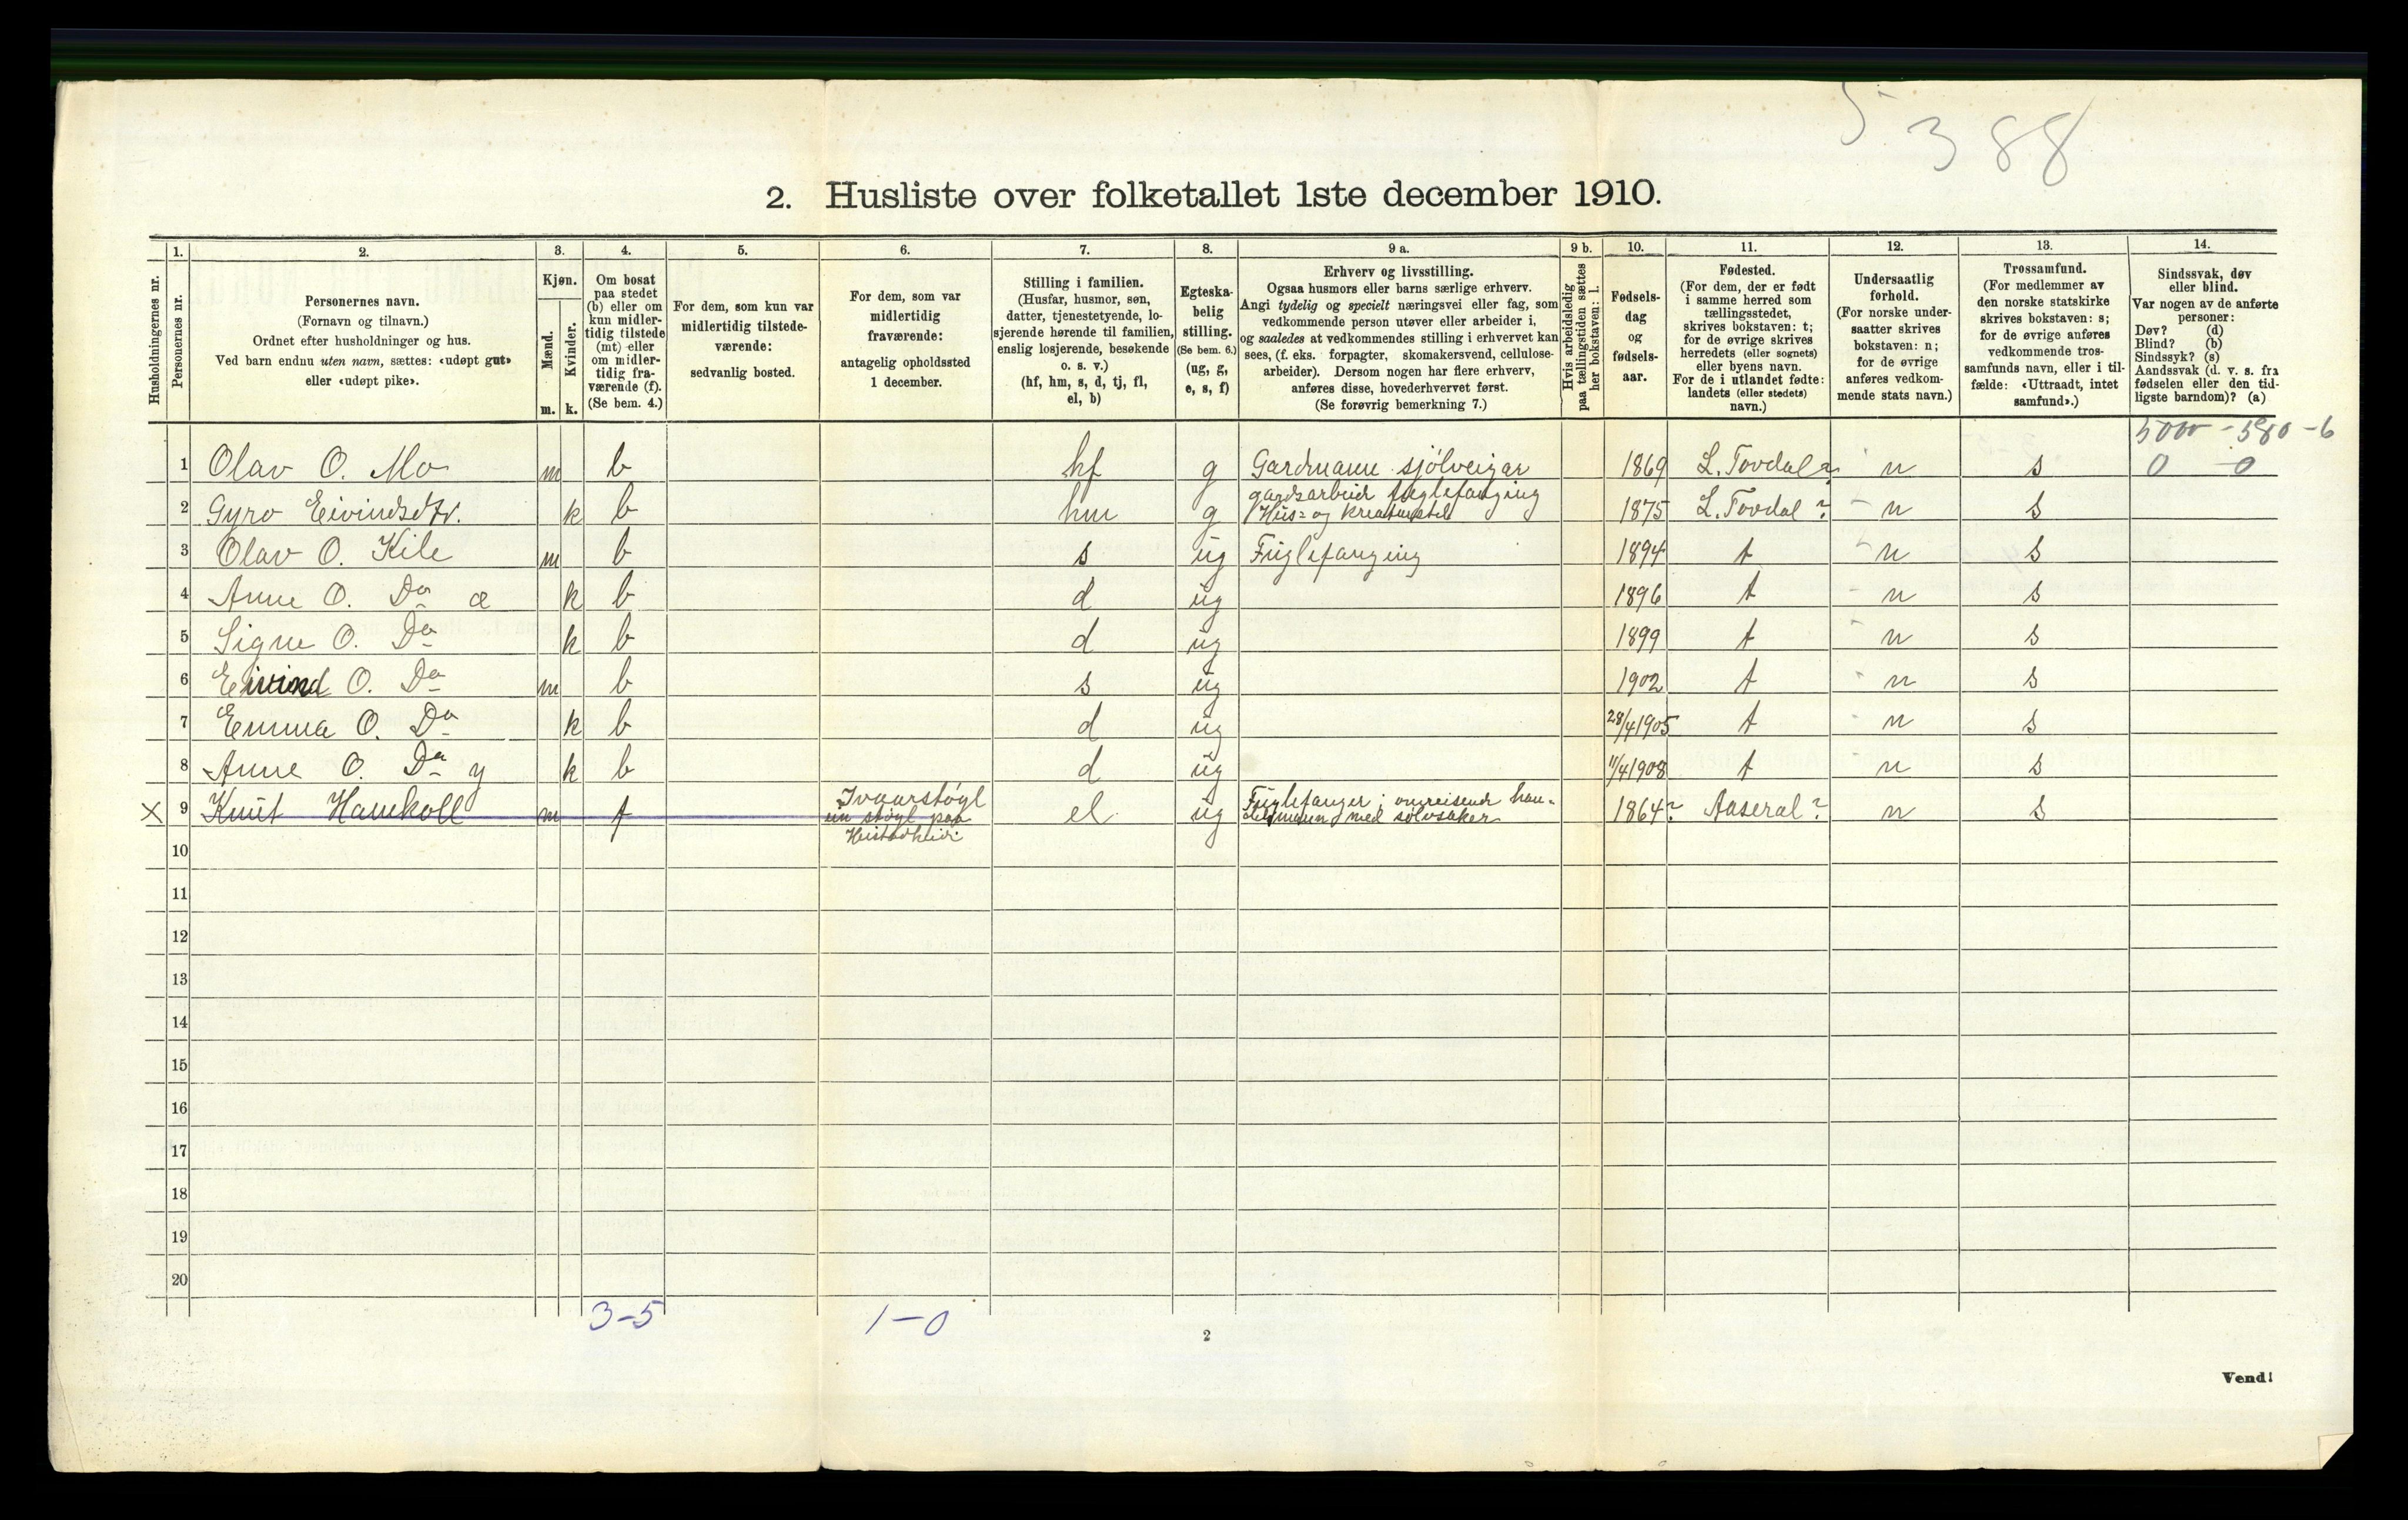 5 388
2. Husliste over folketallet 1ste december 1910.
Husholdningernes nr.
1.
Personernes nr.
2.
Personernes navn.
(Fornavn og tilnavn.)
Ordnet efter husholdninger og hus.
Ved barn endnu uten navn, sættes: «udøpt gut»
eller «udøpt pike».
3.
Kjøn.
Mænd.
m.
Kvinder.
k.
4.
Om bosat
paa stedet
(b) eller om
kun midler-
tidig tilstede
(mt) eller
om midler-
tidig fra-
værende (f).
(Se bem. 4.)
5.
For dem, som kun var
midlertidig tilstede-
værende:
sedvanlig bosted.
6.
For dem, som var
midlertidig
fraværende:
antagelig opholdssted
1 december.
7.
Stilling i familien.
(Husfar, husmor, søn,
datter, tjenestetyende, lo-
sjerende hørende til familien,
enslig losjerende, besøkende
o. s. v.)
(hf, hm, s, d, tj, fl,
el, b)
8.
Egteska-
belig
stilling.
(Se bem. 6.)
(ug, g,
e, s, f)
9 a.
Erhverv og livsstilling.
Ogsaa husmors eller barns særlige erhverv.
Angi tydelig og specielt næringsvei eller fag, som
vedkommende person utøver eller arbeider i,
og saaledes at vedkommendes stilling i erhvervet kan
sees, (f. eks. forpagter, skomakersvend, cellulose-
arbeider). Dersom nogen har flere erhverv,
anføres disse, hovederhvervet først.
(Se forøvrig bemerkning 7.)
9 b.
Hvis arbeidsledig
paa tællingstiden sættes
her bokstaven: l.
10.
Fødsels-
dag
og
fødsels-
aar.
11.
Fødested.
(For dem, der er født
i samme herred som
tællingsstedet,
skrives bokstaven: t;
for de øvrige skrives
herredets (eller sognets)
eller byens navn.
For de i utlandet fødte:
landets (eller stedets)
navn.)
12.
Undersaatlig
forhold.
(For norske under-
saatter skrives
bokstaven: n;
for de øvrige
anføres vedkom-
mende stats navn.)
13.
Trossamfund.
(For medlemmer av
den norske statskirke
skrives bokstaven: s;
for de øvrige anføres
vedkommende tros-
samfunds navn, eller i til-
fælde: «Uttraadt, intet
samfund».)
14.
Sindssvak, døv
eller blind.
Var nogen av de anførte
personer:
Døv? (d)
Blind? (b)
Sindssyk? (s)
Aandssvak (d. v. s. fra
fødselen eller den tid-
ligste barndom)? (a)
5000 - 580 - 6
1 Olav O. Mo m b hf g Gardmann sjölveigar 1869 L. Tovdal? n s 0 0
gardsarbeid fuglefanging
2 Gyro Eivindsdtr. k b hm g Hus- og kreaturstel 1875 L. Tovdal? n s
3 Olav O. Kile m b s ug Fuglefanging 1894 t n s
4 Anne O. Do æ k b d ug 1896 t n s
5 Signe O. Do k b d ug 1899 t n s
6 Eivind O. Do m b s ug 1902 t n s
7 Emma O. Do k b d ug 28/4 1905 t n s
8 Anne O. Do y k b d ug 11/4 1908 t n s
X 9 Knut Hamkoll m f Ivaarstöyl
en støyl paa
el ug Fuglefanger; omreisende han-
delsmann med sølvsaker 1864? Aaseral? n s
10
11
12
13
14
15
16
17
18
19
20
3-5 1-0
2
Vend!